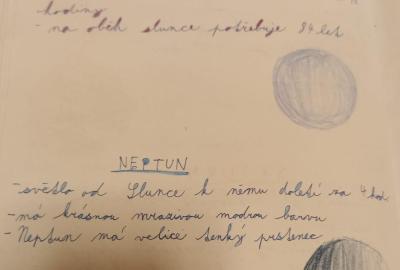 hodiny
- na oběh slunce potřebuje 84 let
NEPTUN
- světlo od Slunce k němu doletí za 4 hod.
- má krásnou mrazivou modrou barvu
- Neptun má velice tenký prstenec